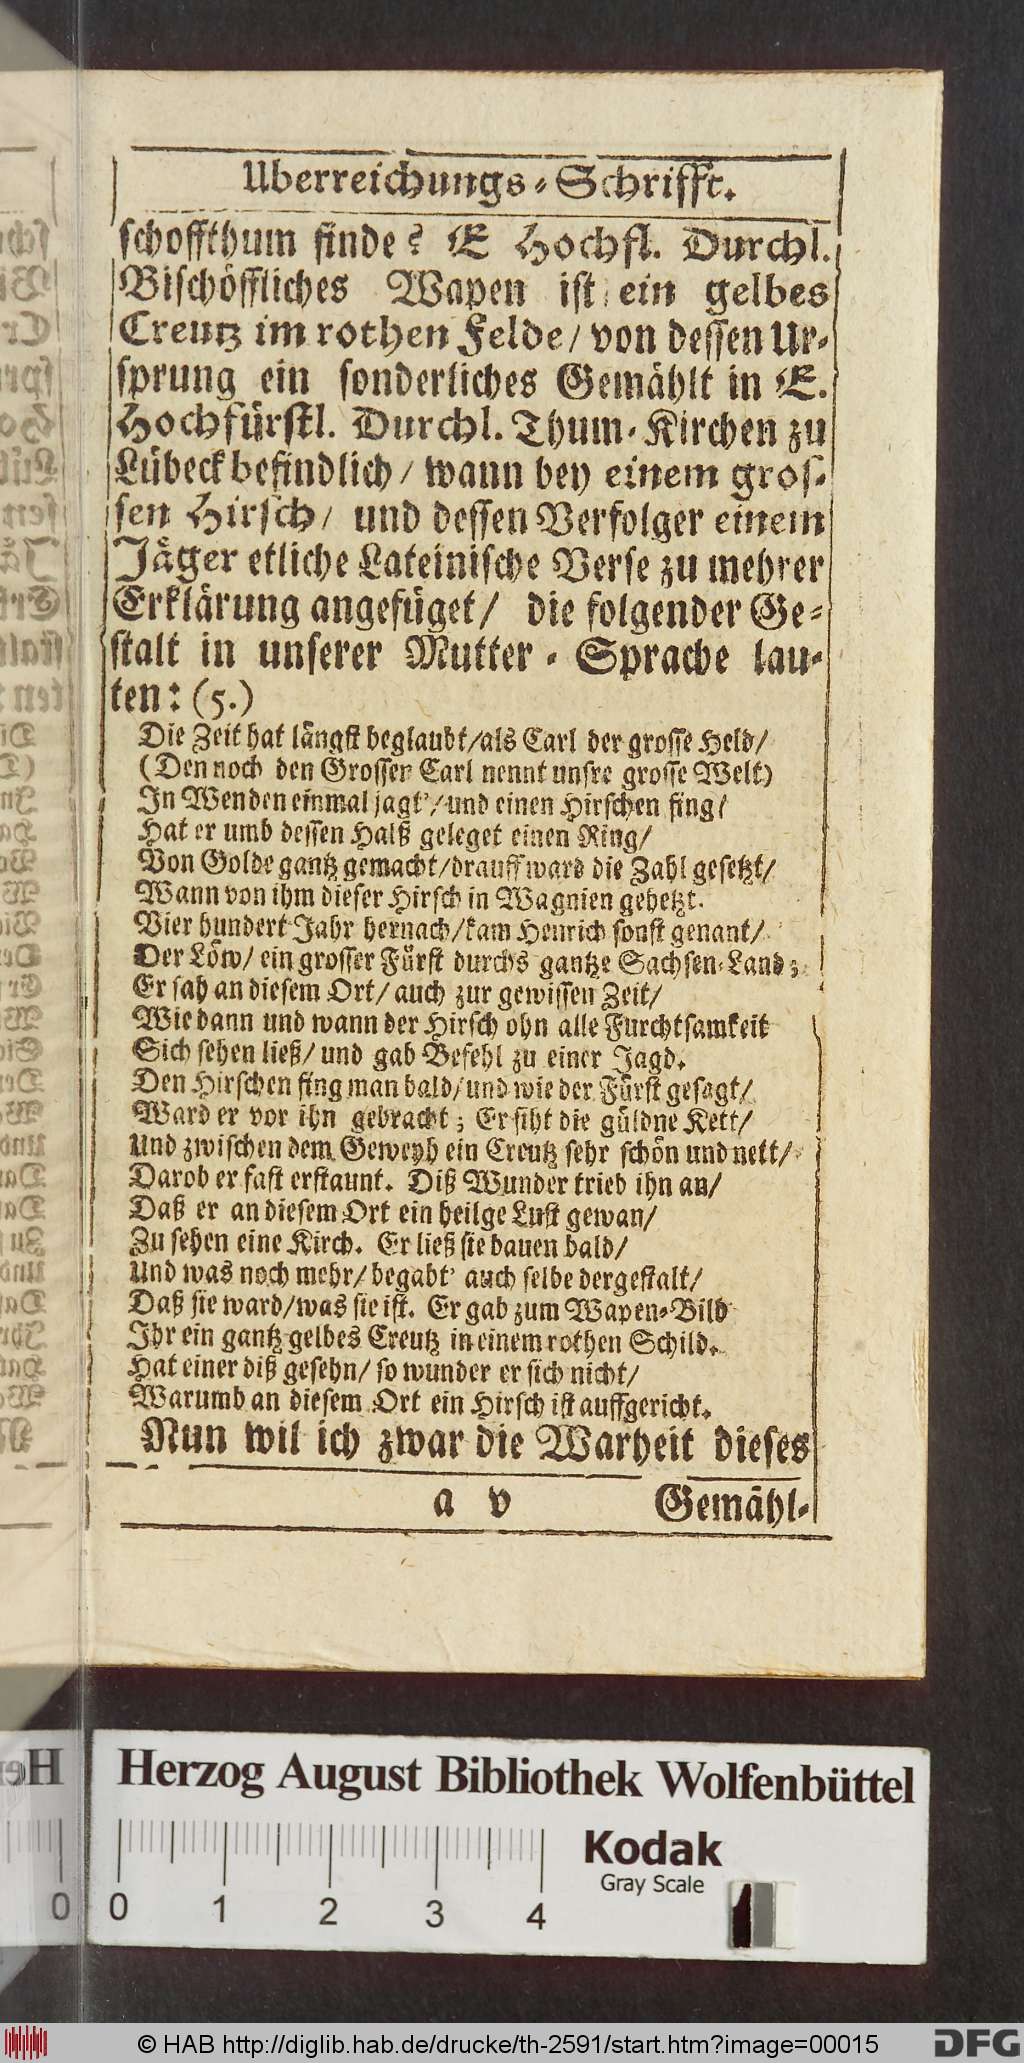 Uberreichungs-Schrifft.
schoffthum finde? E Hochfl. Durchl.
Bischöffliches Wapen ist ein gelbes
Creutz im rothen Felde/ von dessen Ur-
sprung ein sonderliches Gemählt in E.
Hochfürstl. Durchl. Thum-Kirchen zu
Lübeck befindlich/ wann bey einem gros-
sen Hirsch/ und dessen Verfolger einem
Jäger etliche Lateinische Verse zu mehrer
Erklärung angefüget/ die folgender Ge-
stalt in unserer Mutter-Sprache lau-
ten: (5.)
Die Zeit hat längst beglaubt/als Carl der grosse Held/
(Den noch den Grossen Carl nennt unsre grosse Welt)
In Wenden einmal jagt'/und einen Hirschen fing/
Hat er umb dessen Halß geleget einen Ring/
Von Golde gantz gemacht/drauff ward die Zahl gesetzt/
Wann von ihm dieser Hirsch in Wagnien gehetzt.
Vier hundert Jahr hernach/kam Henrich sonst genant/
Der Löw/ ein grosser Fürst durchs gantze Sachsen-Land;
Er sah an diesem Ort/ auch zur gewissen Zeit/
Wie dann und wann der Hirsch ohn alle Furchtsamkeit
Sich sehen ließ/ und gab Befehl zu einer Jagd.
Den Hirschen fing man bald/und wie der Fürst gesagt/
Ward er vor ihn gebracht; Er siht die güldne Kett/
Und zwischen dem Geweyh ein Creutz sehr schön und nett/
Darob er fast erstaunt. Diß Wunder trieb ihn an/
Daß er an diesem Ort ein heilge Lust gewan/
Zu sehen eine Kirch. Er ließ sie bauen bald/
Und was noch mehr/ begabt' auch selbe dergestalt/
Daß sie ward/was sie ist. Er gab zum Wapen-Bild
Ihr ein gantz gelbes Creutz in einem rothen Schild.
Hat einer diß gesehn/ so wunder er sich nicht/
Warumb an diesem Ort ein Hirsch ist auffgericht.
Nun wil ich zwar die Warheit dieses
a v Gemähl-
Herzog August Bibliothek Wolfenbüttel
Kodak
Gray Scale
0 0 1 2 3 4
© HAB http://diglib.hab.de/drucke/th-2591/start.htm?image=00015
DFG